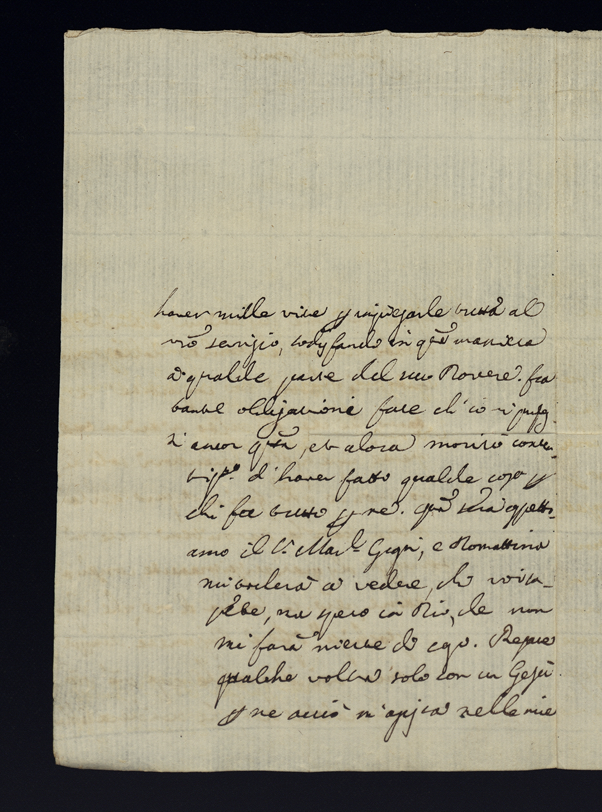 haver mille vite p impiegarle tutte al
vrõ servizio, sodisfando in qtõ maniera
a qualche parte del mio Dovere. fra
tante obligazioni fate ch'io ripurghi
ancor qta, et alora morirò conten-
tissº. d'haver fatto qualche cosa p
chi fa tutto p me. qta sera aspetti-
amo il Sr. March. Gagni, e Domattina
mi vedere, che
ma spero in Dio, che non
mi farà niente di Pregate
qualche volta solo con un Gesù
p me acciò m'agiuta nelle mie